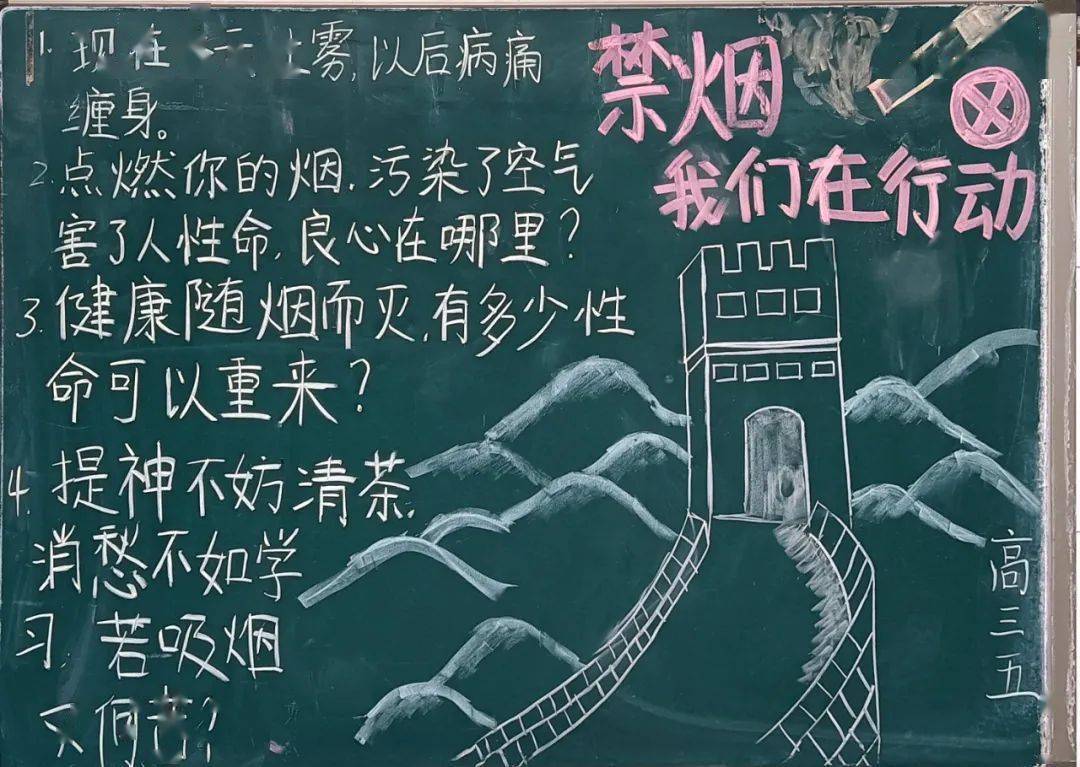 禁烟
我们在行动
1. 现在 雾,以后病痛
缠身。
2. 点燃你的烟.污染了空气
害了人性命,良心在哪里?
3. 健康随烟而灭,有多少性
命可以重来?
4. 提神不妨清茶,
消愁不如学
习,若吸烟
又何苦?
高三五